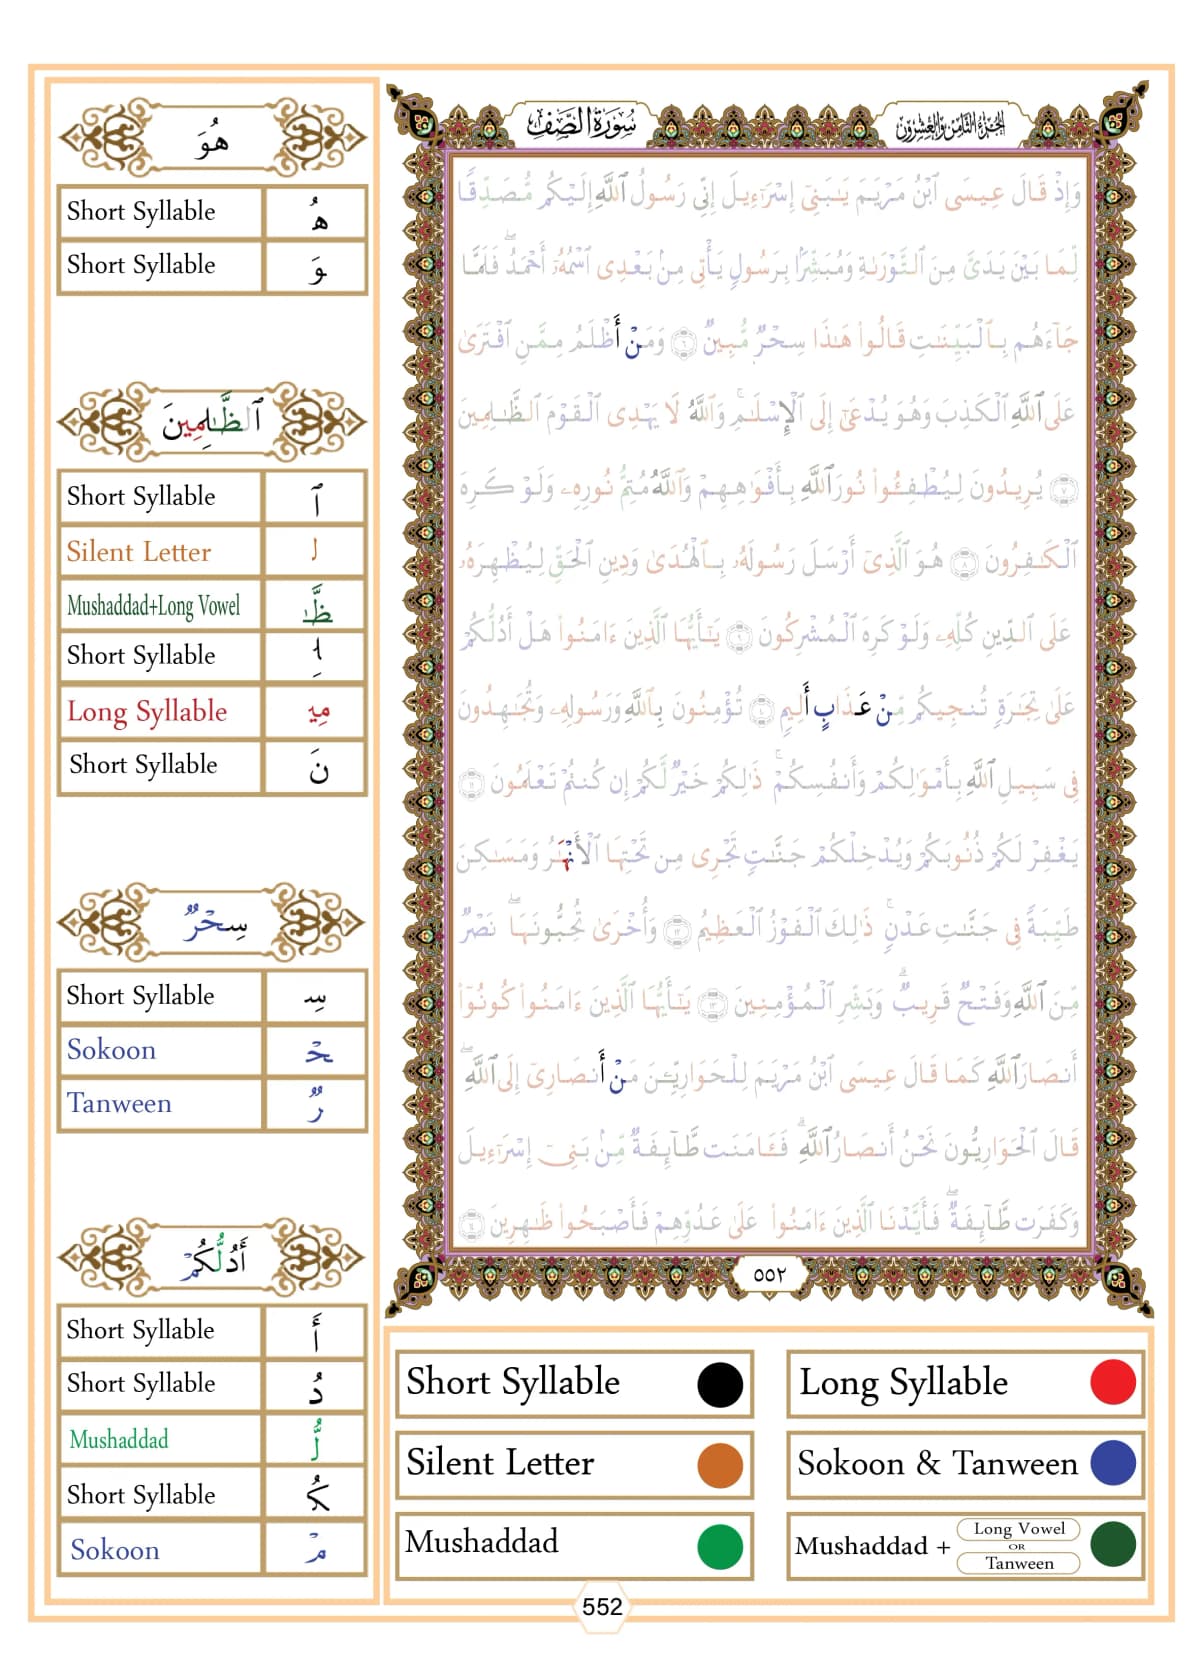 هُوَ
Short Syllable هُ
Short Syllable وَ
ٱلظَّـٰلِمِينَ
Short Syllable ٱ
Silent Letter ل
Mushaddad+Long Vowel ظَّـٰ
Short Syllable لِ
Long Syllable مِيـ
Short Syllable نَ
سِحْرٌ
Short Syllable سِـ
Sokoon حْـ
Tanween رٌ
أَدُلُّكُمْ
Short Syllable أَ
Short Syllable دُ
Mushaddad لُّ
Short Syllable كُـ
Sokoon مْ
سُورَةُ الصَّفِّ
الجُزْءُ الثَّامِنُ وَالعِشْرُونَ
وَإِذْ قَالَ عِيسَى ٱبْنُ مَرْيَمَ يَـٰبَنِىٓ إِسْرَٰٓءِيلَ إِنِّى رَسُولُ ٱللَّهِ إِلَيْكُم مُّصَدِّقًا
لِّمَا بَيْنَ يَدَىَّ مِنَ ٱلتَّوْرَىٰةِ وَمُبَشِّرًۢا بِرَسُولٍ يَأْتِى مِنۢ بَعْدِى ٱسْمُهُۥٓ أَحْمَدُ ۖ فَلَمَّا
جَآءَهُم بِٱلْبَيِّنَـٰتِ قَالُوا۟ هَـٰذَا سِحْرٌ مُّبِينٌ ٦ وَمَنْ أَظْلَمُ مِمَّنِ ٱفْتَرَىٰ
عَلَى ٱللَّهِ ٱلْكَذِبَ وَهُوَ يُدْعَىٰٓ إِلَى ٱلْإِسْلَـٰمِ ۚ وَٱللَّهُ لَا يَهْدِى ٱلْقَوْمَ ٱلظَّـٰلِمِينَ
٧ يُرِيدُونَ لِيُطْفِـُٔوا۟ نُورَ ٱللَّهِ بِأَفْوَٰهِهِمْ وَٱللَّهُ مُتِمُّ نُورِهِۦ وَلَوْ كَرِهَ
ٱلْكَـٰفِرُونَ ٨ هُوَ ٱلَّذِىٓ أَرْسَلَ رَسُولَهُۥ بِٱلْهُدَىٰ وَدِينِ ٱلْحَقِّ لِيُظْهِرَهُۥ
عَلَى ٱلدِّينِ كُلِّهِۦ وَلَوْ كَرِهَ ٱلْمُشْرِكُونَ ٩ يَـٰٓأَيُّهَا ٱلَّذِينَ ءَامَنُوا۟ هَلْ أَدُلُّكُمْ
عَلَىٰ تِجَـٰرَةٍ تُنجِيكُم مِّنْ عَذَابٍ أَلِيمٍ ١٠ تُؤْمِنُونَ بِٱللَّهِ وَرَسُولِهِۦ وَتُجَـٰهِدُونَ
فِى سَبِيلِ ٱللَّهِ بِأَمْوَٰلِكُمْ وَأَنفُسِكُمْ ۚ ذَٰلِكُمْ خَيْرٌ لَّكُمْ إِن كُنتُمْ تَعْلَمُونَ ١١
يَغْفِرْ لَكُمْ ذُنُوبَكُمْ وَيُدْخِلْكُمْ جَنَّـٰتٍ تَجْرِى مِن تَحْتِهَا ٱلْأَنْهَـٰرُ وَمَسَـٰكِنَ
طَيِّبَةً فِى جَنَّـٰتِ عَدْنٍ ۚ ذَٰلِكَ ٱلْفَوْزُ ٱلْعَظِيمُ ١٢ وَأُخْرَىٰ تُحِبُّونَهَا ۖ نَصْرٌ
مِّنَ ٱللَّهِ وَفَتْحٌ قَرِيبٌ ۗ وَبَشِّرِ ٱلْمُؤْمِنِينَ ١٣ يَـٰٓأَيُّهَا ٱلَّذِينَ ءَامَنُوا۟ كُونُوٓا۟
أَنصَارَ ٱللَّهِ كَمَا قَالَ عِيسَى ٱبْنُ مَرْيَمَ لِلْحَوَارِيِّـۧنَ مَنْ أَنصَارِىٓ إِلَى ٱللَّهِ ۖ
قَالَ ٱلْحَوَارِيُّونَ نَحْنُ أَنصَارُ ٱللَّهِ ۖ فَـَٔامَنَت طَّآئِفَةٌ مِّنۢ بَنِىٓ إِسْرَٰٓءِيلَ
وَكَفَرَت طَّآئِفَةٌ ۖ فَأَيَّدْنَا ٱلَّذِينَ ءَامَنُوا۟ عَلَىٰ عَدُوِّهِمْ فَأَصْبَحُوا۟ ظَـٰهِرِينَ ١٤
٥٥٢
Short Syllable
Long Syllable
Silent Letter
Sokoon & Tanween
Mushaddad
Mushaddad + Long Vowel OR Tanween
552